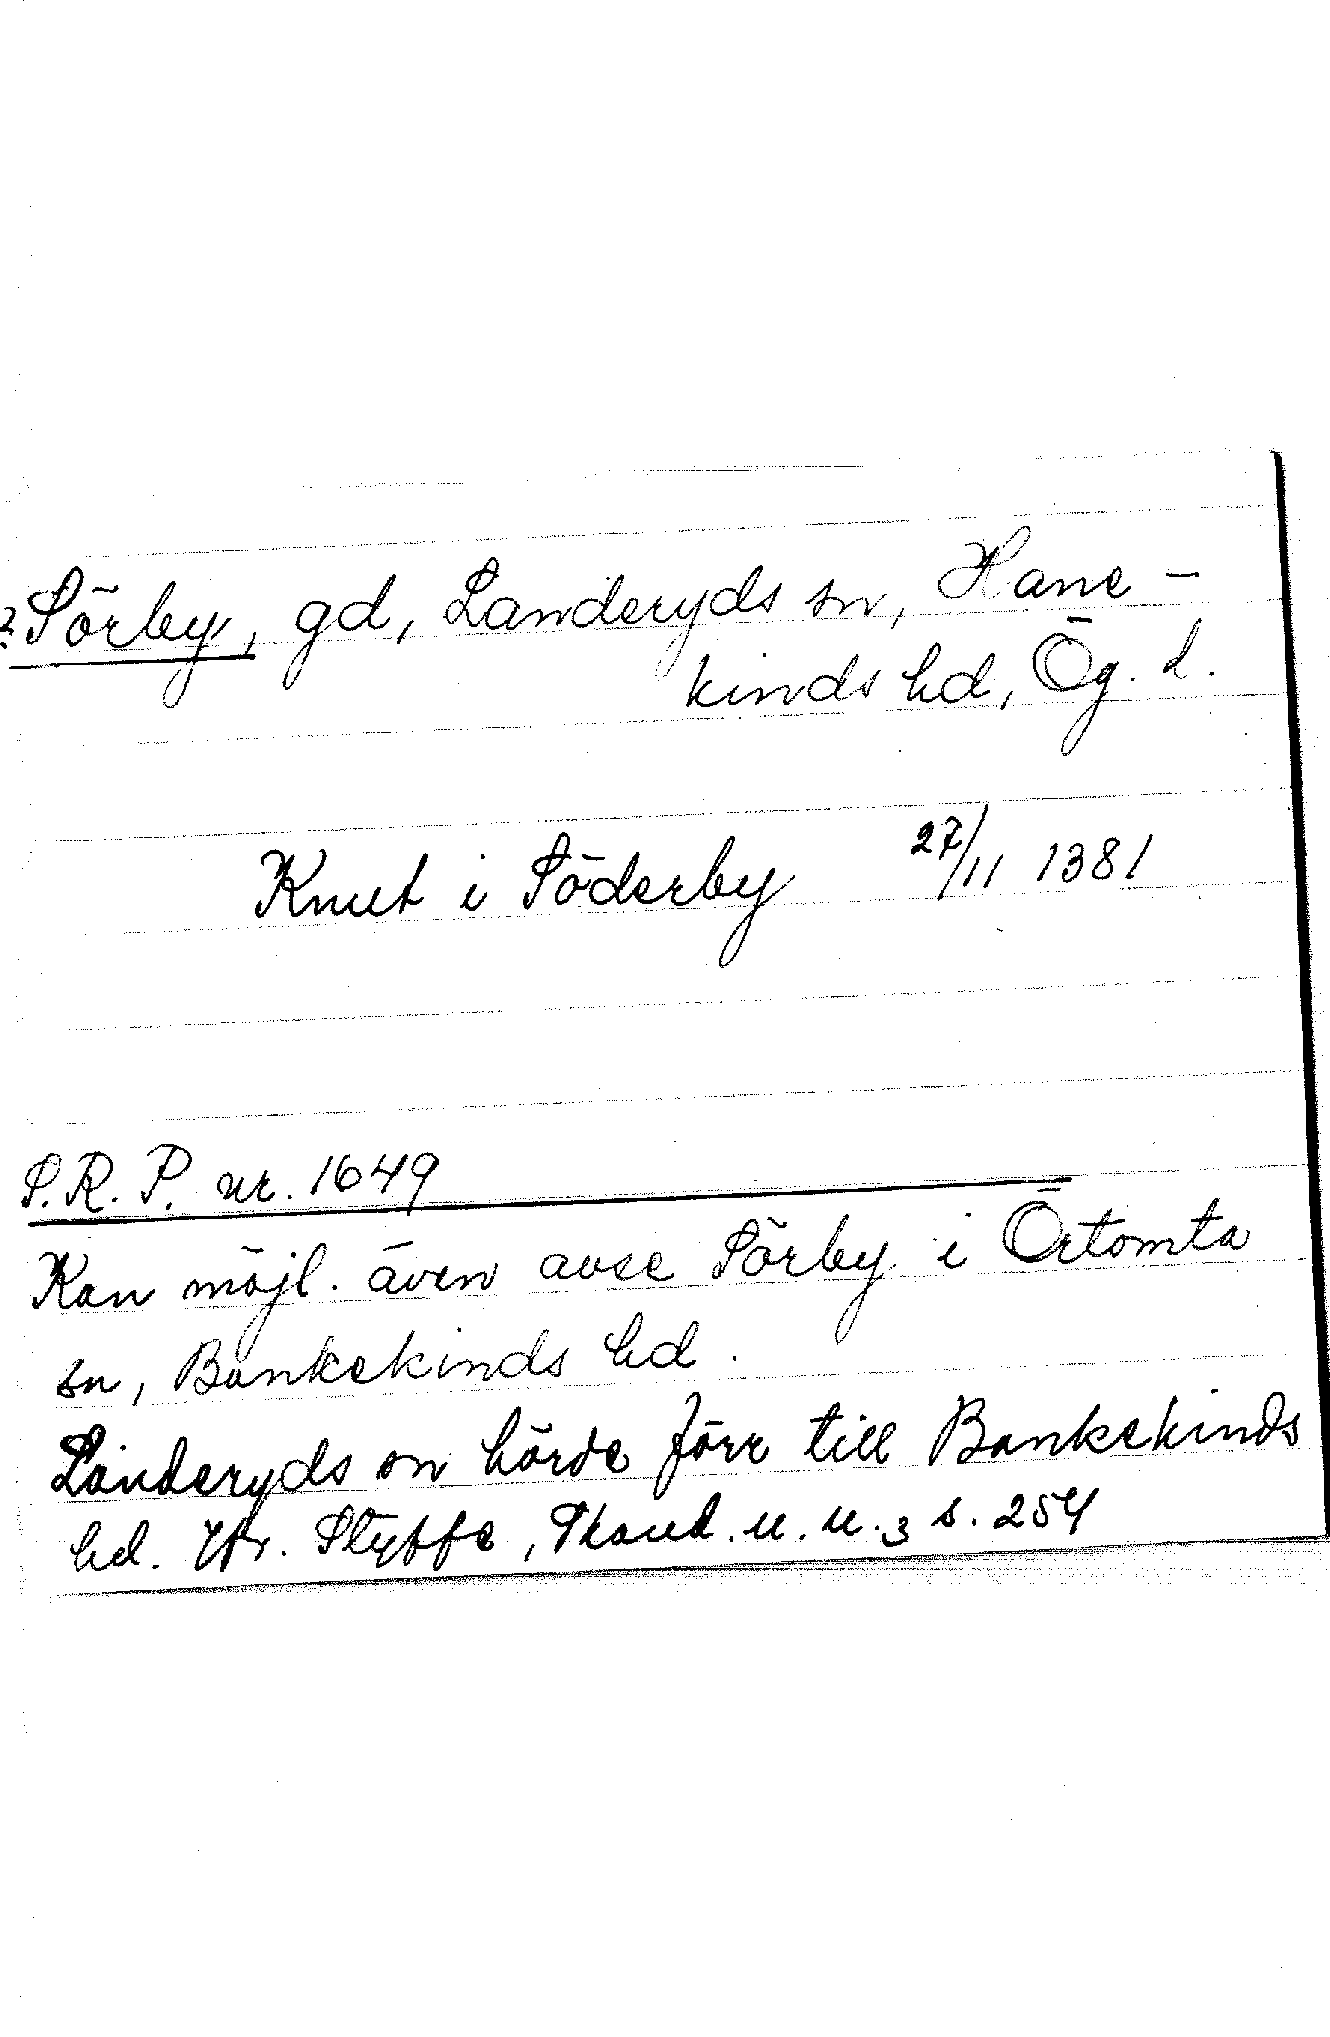 ? Sörby, gd, Landeryds sn, Hane-
kinds hd, Ög. l.
Knut i Söderby 27/11 1381
S.R.P. nr. 1649
Kan möjl. även avse Sörby i Örtomta
sn, Bankekinds hd.
Landeryds sn hörde förr till Bankekinds
hd. Jfr. Styffe, Skand. u. u. 3 s. 254